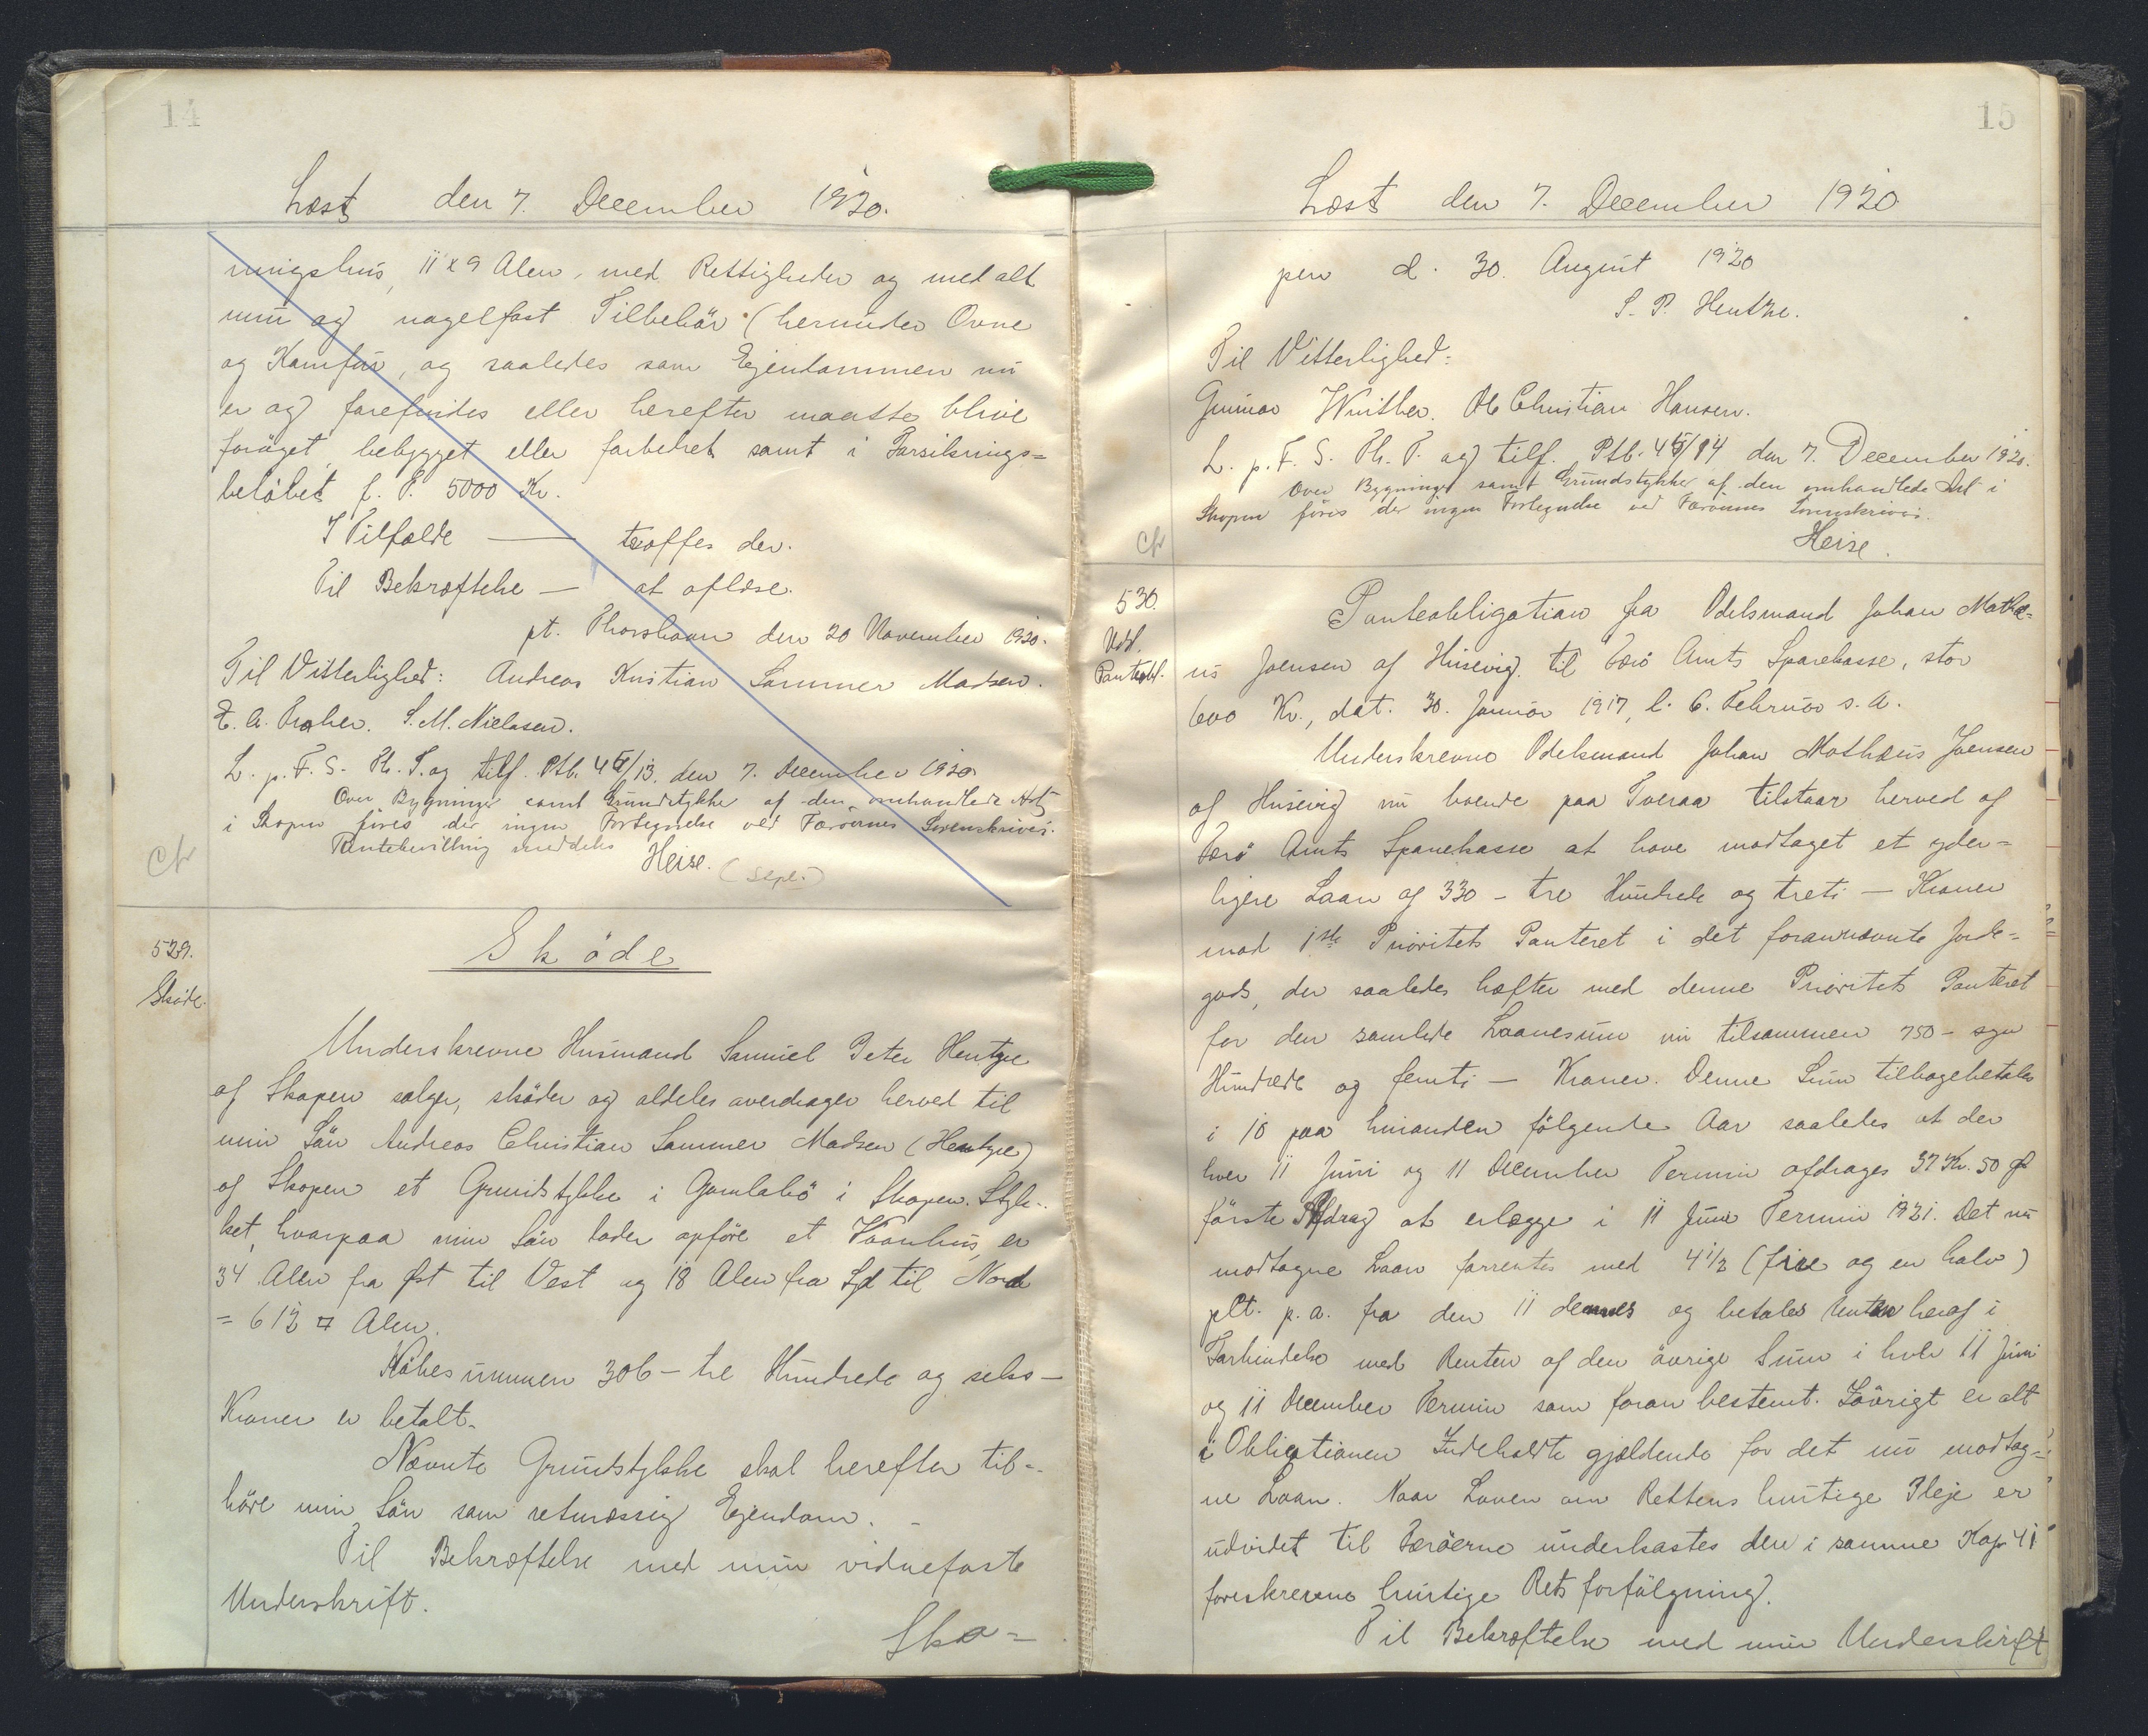 14
Læst den 7. December 1920.
ningshus, 11 x 9 Alen, med Rettigheder og med alt
mur og nagelfast Tilbehör (herunder Ovne
og Komfur, og saaledes som Ejendommen nu
er og forefindes eller herefter maatte blive
foröget, bebygget eller forbedret samt i Forsikrings=
belöbet f. T. 5000 Kr.
I Tilfælde — træffes der.
Til Bekræftelse — at aflæse.
pt. Thorshavn den 20 November 1920.
Til Vitterlighed: Andreas Kristian Sommer Madsen.
S. M. Nielsen.
L. p. F. S. Th. T. og tilf. Ptb. 45/13. den 7. December 1920.
Over Bygninger samt Grundstykke af den omhandlede Art
i Skopen föres der ingen Fortegnelse ved Færöernes Sorenskriveri.
Rentebevilling meddeles
Heise. (Stpl.)
529.
Sköde.
Sköde
Underskrevne Husmand Samuel Peter Hentze
af Skopen sælger, sköder og aldeles overdrager herved til
min Sön Andreas Christian Sommer Madsen (Hentze)
af Skopen et Grundstykke i Gamlabö i Skopen. Styk-
ket, hvorpaa min Sön lader opföre et Vaanhus, er
34 Alen fra Öst til Vest og 18 Alen fra Syd til Nord
= 612 □ Alen.
Köbesummen 306 – tre Hundrede og seks –
Kroner er betalt.
Nævnte Grundstykke skal herefter til-
höre min Sön som retmæssig Ejendom.
Til Bekræftelse med min vidnefaste
Underskrift.
Sko=
15
Læst den 7. December 1920
pen d. 30. August 1920
S. P. Hentze.
Til Vitterlighed:
Gunnar Winther. Ole Christian Hansen.
L. p. F. S. Th. T. og tilf. Ptb. 45/14 den 7. December 1920.
Over Bygninger samt Grundstykker af den omhandlede Art i
Skopen föres der ingen Fortegnelse ved Færöernes Sorenskriveri.
Heise.
530.
Udsl.
Panteobl.
Panteobligation fra Odelsmand Johan Mathæ=
us Joensen af Husevig til Færö Amts Sparekasse, stor
600 Kr., dat. 30. Januar 1917, l. 6. Februar s. A.
Underskrevne Odelsmand Johan Mathæus Joensen
af Husevig nu boende paa Tveraa tilstaar herved af
Færö Amts Sparekasse at have modtaget et yder=
ligere Laan af 330 – tre Hundrede og treti – Kroner
mod 1ste Prioritets Panteret i det forannævnte Jorde=
gods, der saaledes hæfter med denne Prioritets Panteret
for den samlede Laanesum nu tilsammen 750 – syv
Hundrede og femti – Kroner. Denne Sum tilbagebetales
i 10 paa hinanden fölgende Aar saaledes at der
hver 11 Juni og 11 December Termin afdrages 37 Kr. 50 Ø
förste Afdrag at erlægge i 11 Juni Termin 1921. Det nu
modtagne Laan forrentes med 4 1/2 (fire og en halv)
pCt. p. a. fra den 11 dennes og betales Renten heraf i
Forbindelse med Renten af den övrige Sum i hver 11 Juni
og 11 December Termin som foran bestemt. Iövrigt er alt
i Obligationen Indeholdte gjældende for det nu modtag=
ne Laan. Naar Loven om Rettens hurtige Pleje er
udvidet til Færöerne underkastes den i samme Kap 41
foreskrevne hurtige Retsforfölgning.
Til Bekræftelse med min Underskrift